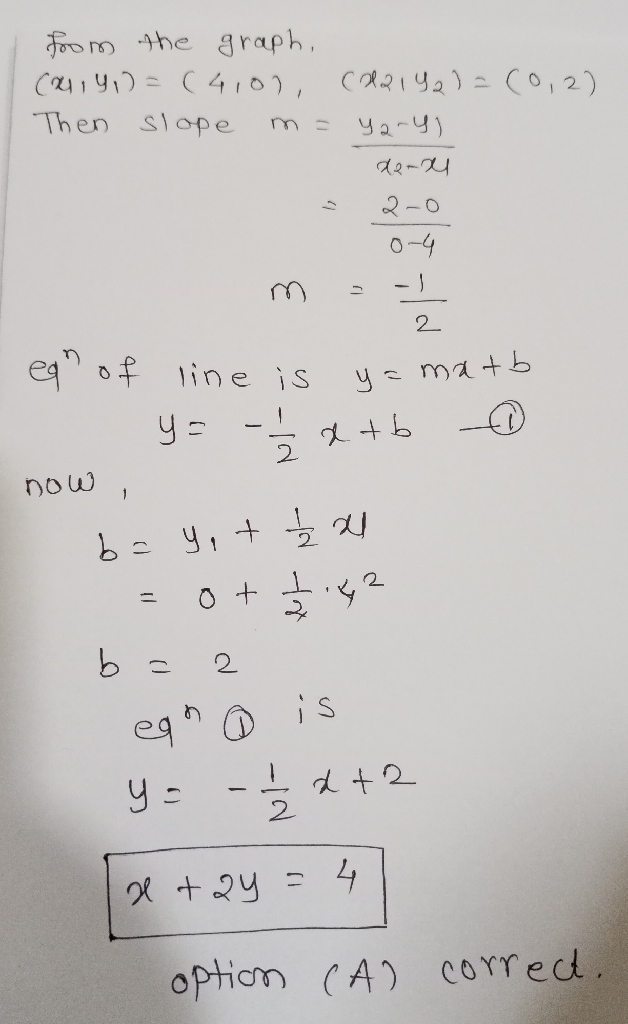 from the graph,
(x1, y1) = (4,0), (x2, y2) = (0,2)
Then slope m = y2-y1
x2-x1
= 2-0
0-4
m = -1
2
eqn of line is y = mx+b
y = -1/2 x+b —①
now,
b = y1 + 1/2 x1
= 0 + 1/2 · 4 2
b = 2
eqn ① is
y = -1/2 x+2
x + 2y = 4
option (A) correct.